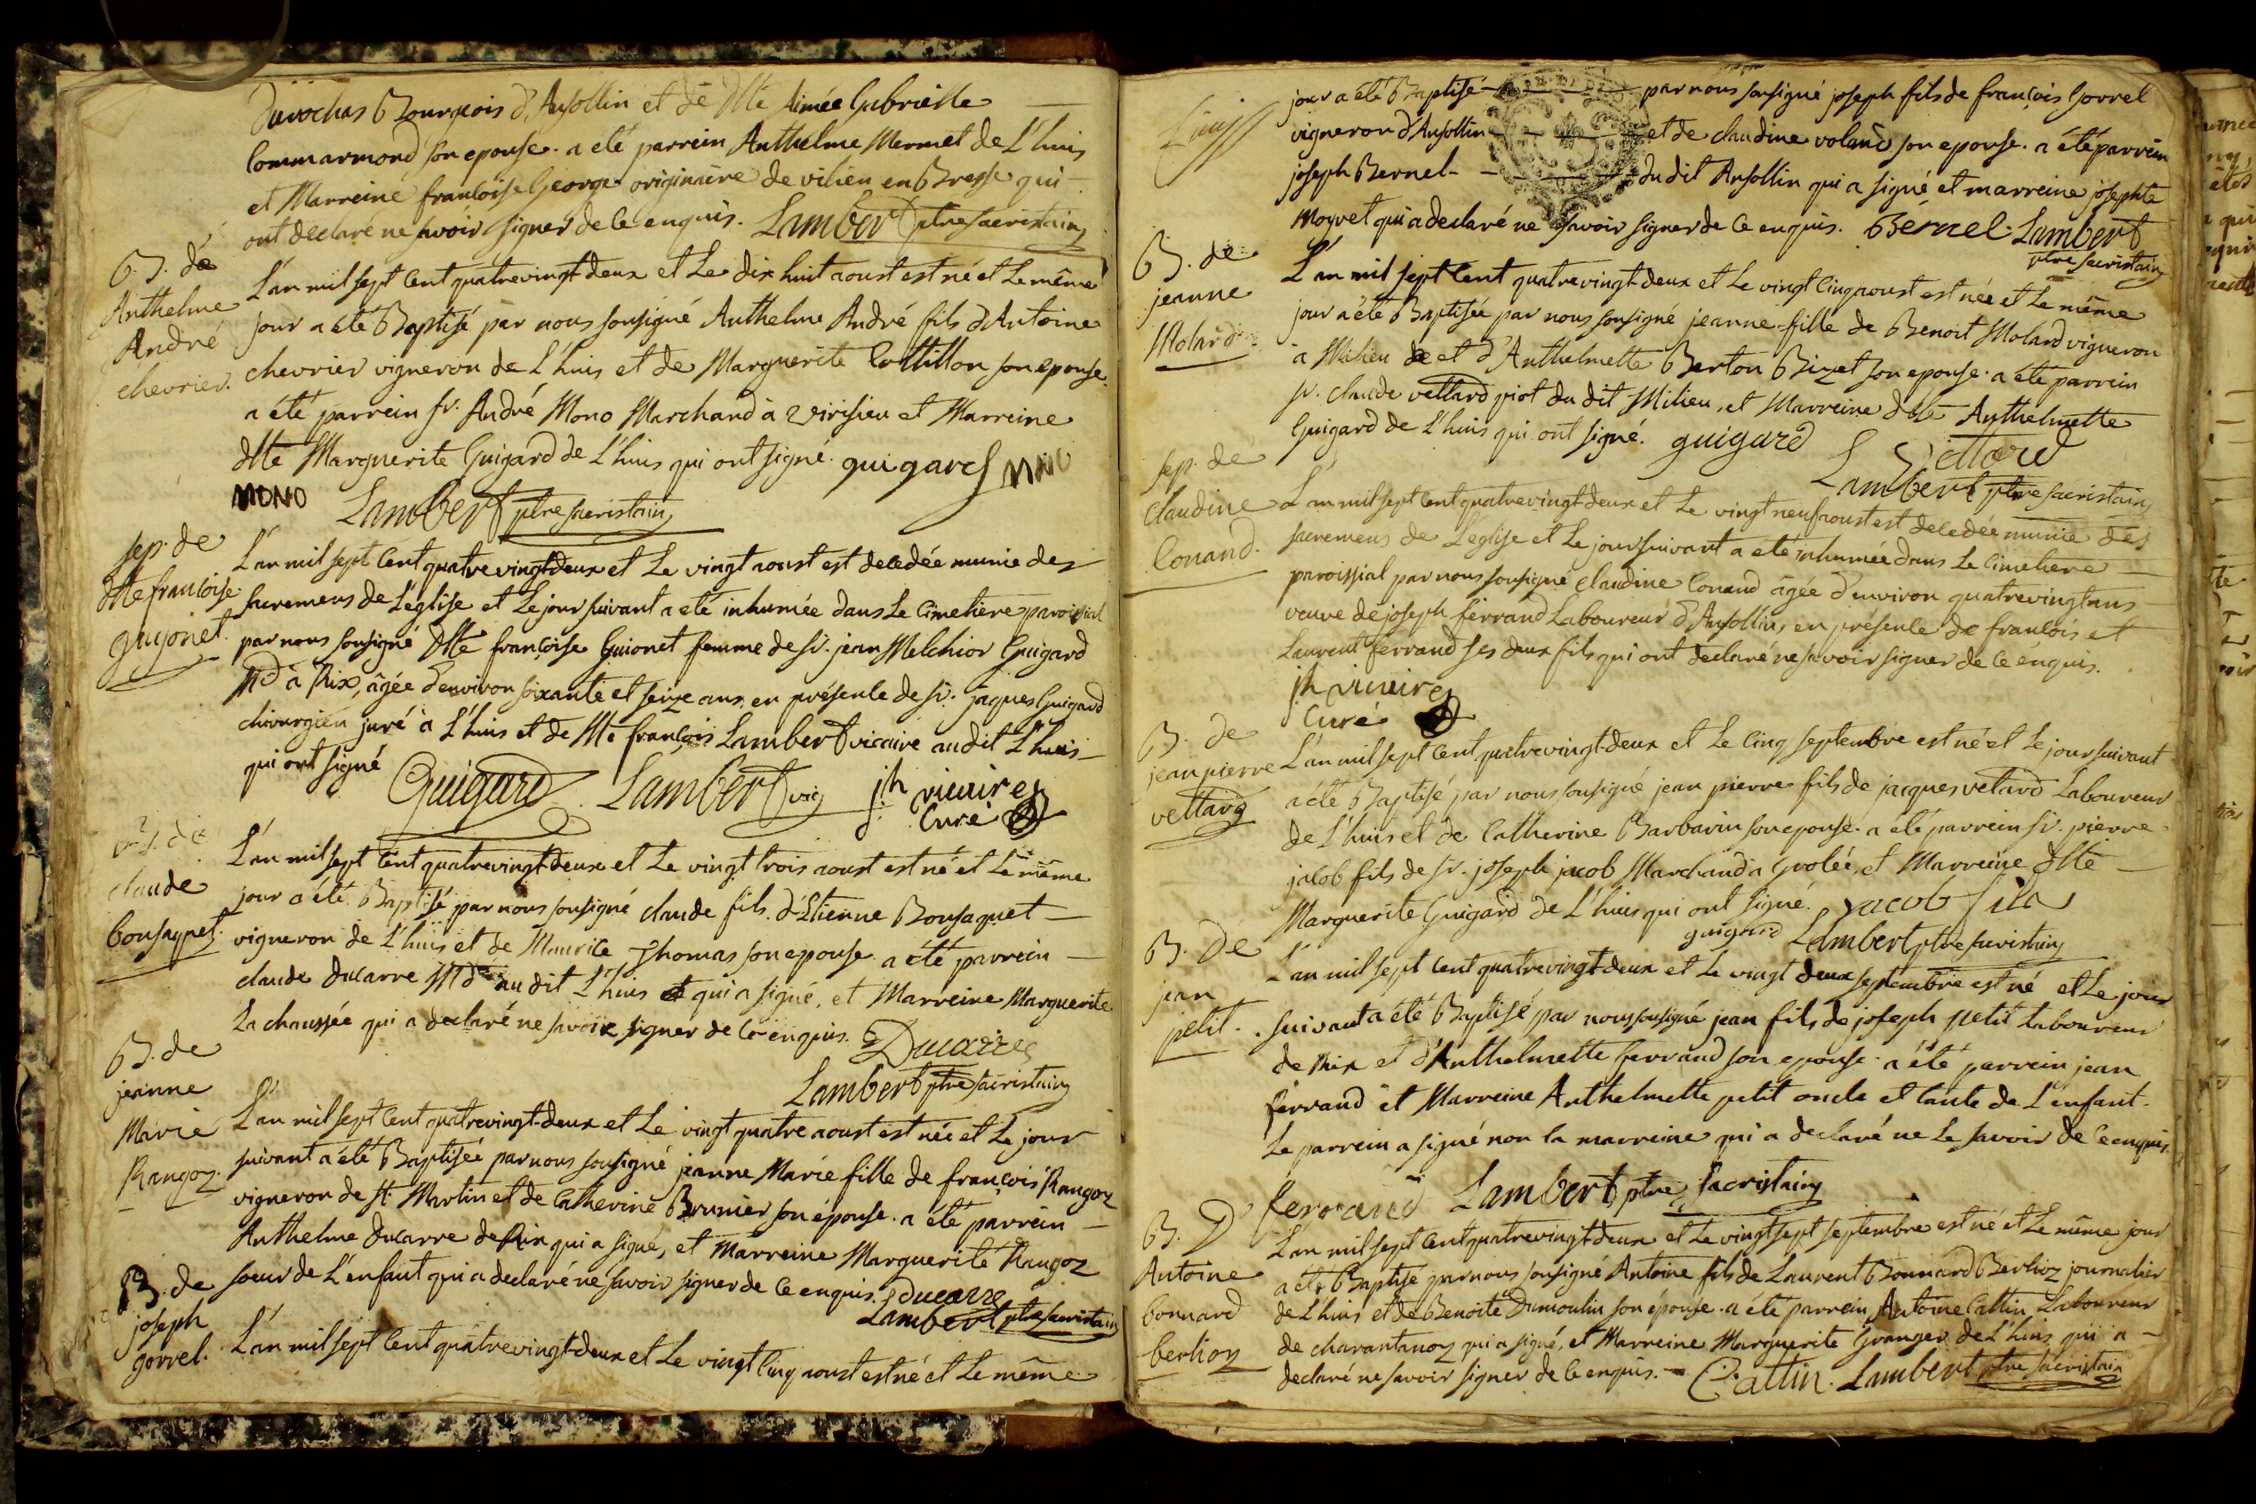 Durochas Bourgeois d'Ansollin et de Dlle Aimée Gabrielle
Commarmond son epouse. a été parrein Anthelme Mermet de L'huis
et Marreine francoise George originaire de vilieu en Bresse qui
ont declaré ne savoir signer de ce enquis. Lambert ptre sacristain
B. de
Anthelme
André
chevrier.
L'an mil sept cent quatrevingt-deux et Le dix huit aoust est né et Le même
jour a été Baptisé par nous sousigné Anthelme André fils d'Antoine
chevrier vigneron de L'huis et de Marguerite Cottillon son epouse.
a été parrein sr. André Mono Marchand à virisieu et Marreine
dlle Marguerite Guigard de L'huis qui ont signé. guigard
MONO Lambert ptre sacristain
sep. de
dlle francoise
guyonet.
L'an mil sept cent quatrevingt-deux et Le vingt aoust est decedée munie des
sacremens de L'eglise et Le jour suivant a eté inhumée dans Le Cimetiere paroissial
par nous sousigné Dlle françoise Guionet femme de sr. jean Melchior Guigard
Md a Rix, âgée d'environ soixante et seize ans, en présence de sr. jaques Guigard
chirurgien juré à L'huis et de Me françois Lambert vicaire audit L'huis
qui ont signé Guigard Lambert vic jh vicaire
Curé
B. de
claude
bonsaquet.
L'an mil sept cent quatrevingt-deux et Le vingt trois aoust est né et Le même
jour a été Baptisé par nous sousigné claude fils d'Etienne Bonsaquet
vigneron de L'huis et de Maurice Thomas son epouse a été parrein
claude Ducarre Md au dit L'huis qui a signé, et Marreine Marguerite
La chaussée qui a declaré ne savoir signer de ce enquis. Ducarre
Lambert ptre sacristain
B. de
jeanne
Marie
Rangoz.
L'an mil sept cent quatrevingt-deux et Le vingt quatre aoust est née et Le jour
suivant a été Baptisée par nous sousigné jeanne Marie fille de françois Rangoz
vigneron de St. Martin et de Catherine Brunier son épouse. a été parrein
Anthelme Ducarre de Rix qui a signé, et Marreine Marguerite Rangoz
soeur de L'enfant qui a declaré ne savoir signer de ce enquis. Ducarre
Lambert ptre sacristain
B. de
joseph
gorrel.
L'an mil sept cent quatrevingt-deux et Le vingt cinq aoust est né et Le même
jour a été Baptisé par nous sousigné joseph fils de françois Gorrel
vigneron d'Ansollin et de claudine voland son epouse. a été parrein
joseph Bernel du dit Ansollin qui a signé et marreine josephte
Moyret qui a declaré ne savoir signer de ce enquis. Bernel. Lambert
ptre sacristain
B. de
jeanne
Molard
L'an mil sept cent quatrevingt-deux et Le vingt cinq aoust est née et Le même
jour a été Baptisée par nous sousigné jeanne fille de Benoit Molard vigneron
à Milieu et d'Anthelmette Berton Bizet son epouse. a été parrein
sr. claude vettard piot du dit Milieu, et Marreine dlle Anthelmette
Guigard de L'huis qui ont signé. guigard Vettard
Lambert ptre sacristain
sep. de
claudine
Conand.
L'an mil sept cent quatrevingt-deux et Le vingt neuf aoust est decedée munie des
sacremens de L'eglise et Le jour suivant a été inhumée dans Le cimetiere
paroissial par nous sousigné claudine Conand âgée d'environ quatrevingt ans
veuve de joseph ferrand Laboureur d'Ansollin, en présence de francois et
Laurent ferrand ses deux fils qui ont declaré ne savoir signer de ce enquis.
jh vicaire
Curé
B. de
jean pierre
vettard
L'an mil sept cent quatrevingt-deux et Le cinq septembre est né et Le jour suivant
a été Baptisé par nous sousigné jean pierre fils de jacques vetard Laboureur
de L'huis et de Catherine Barbarin son epouse. a été parrein sr. pierre
jacob fils de sr. joseph jacob Marchand à Grolée, et Marreine dlle
Marguerite Guigard de L'huis qui ont signé. jacob fils
guigard Lambert ptre sacristain
B. De
jean
petit.
L'an mil sept cent quatrevingt-deux et Le vingt deux septembre est né et Le jour
suivant a été Baptisé par nous sousigné jean fils de joseph petit Laboureur
de Rix et d'Anthelmette ferrand son epouse. a été parrein jean
ferrand et Marreine Anthelmette petit oncle et tante de L'enfant.
Le parrein a signé non la marreine qui a declaré ne Le savoir de ce enquis.
ferrand Lambert ptre sacristain
B. D'
Antoine
bonnard
berlioz
L'an mil sept cent quatrevingt-deux et Le vingt sept septembre est né et Le même jour
a été Baptisé par nous sousigné Antoine fils de Laurent Bonnard Berlioz journalier
de L'huis et de Benoite Dumoulin son épouse. a été parrein Antoine Cattin Laboureur
de charantanoz qui a signé, et Marreine Marguerite Granger de L'huis qui a
declaré ne savoir signer de ce enquis. Cattin. Lambert ptre sacristain